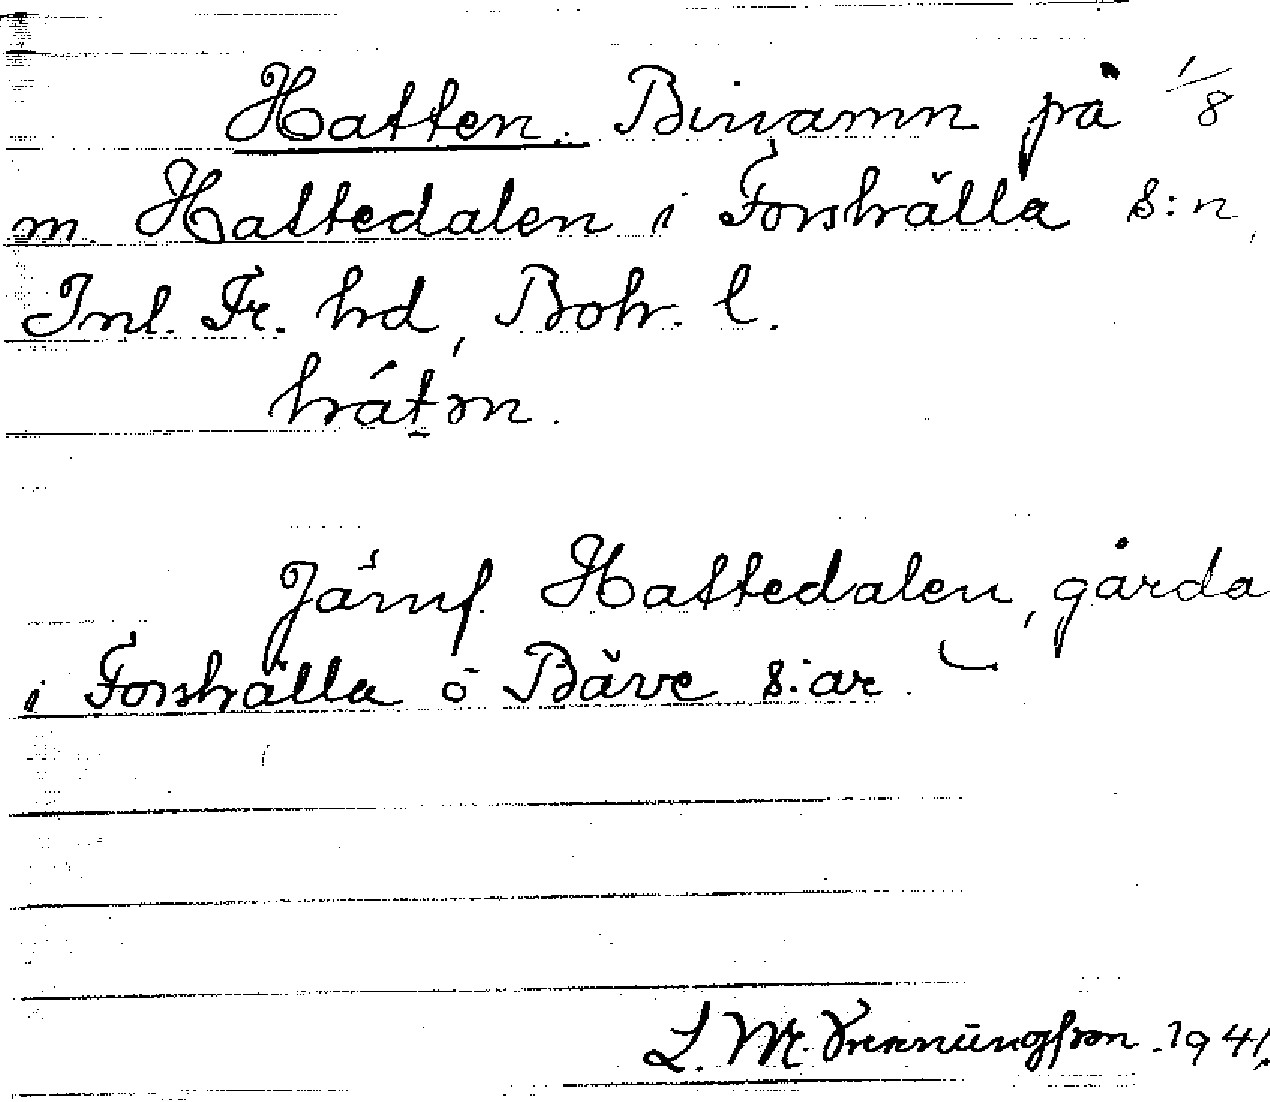 Hatten. Binamn på 1/8
m. Hattedalen i Forshälla s:n,
Inl. Fr. hd, Boh. l.
hát̠ɘn.
Jämf. Hattedalen, gårda
i Forshälla o Bäve s:ar.
L. M. 1941.